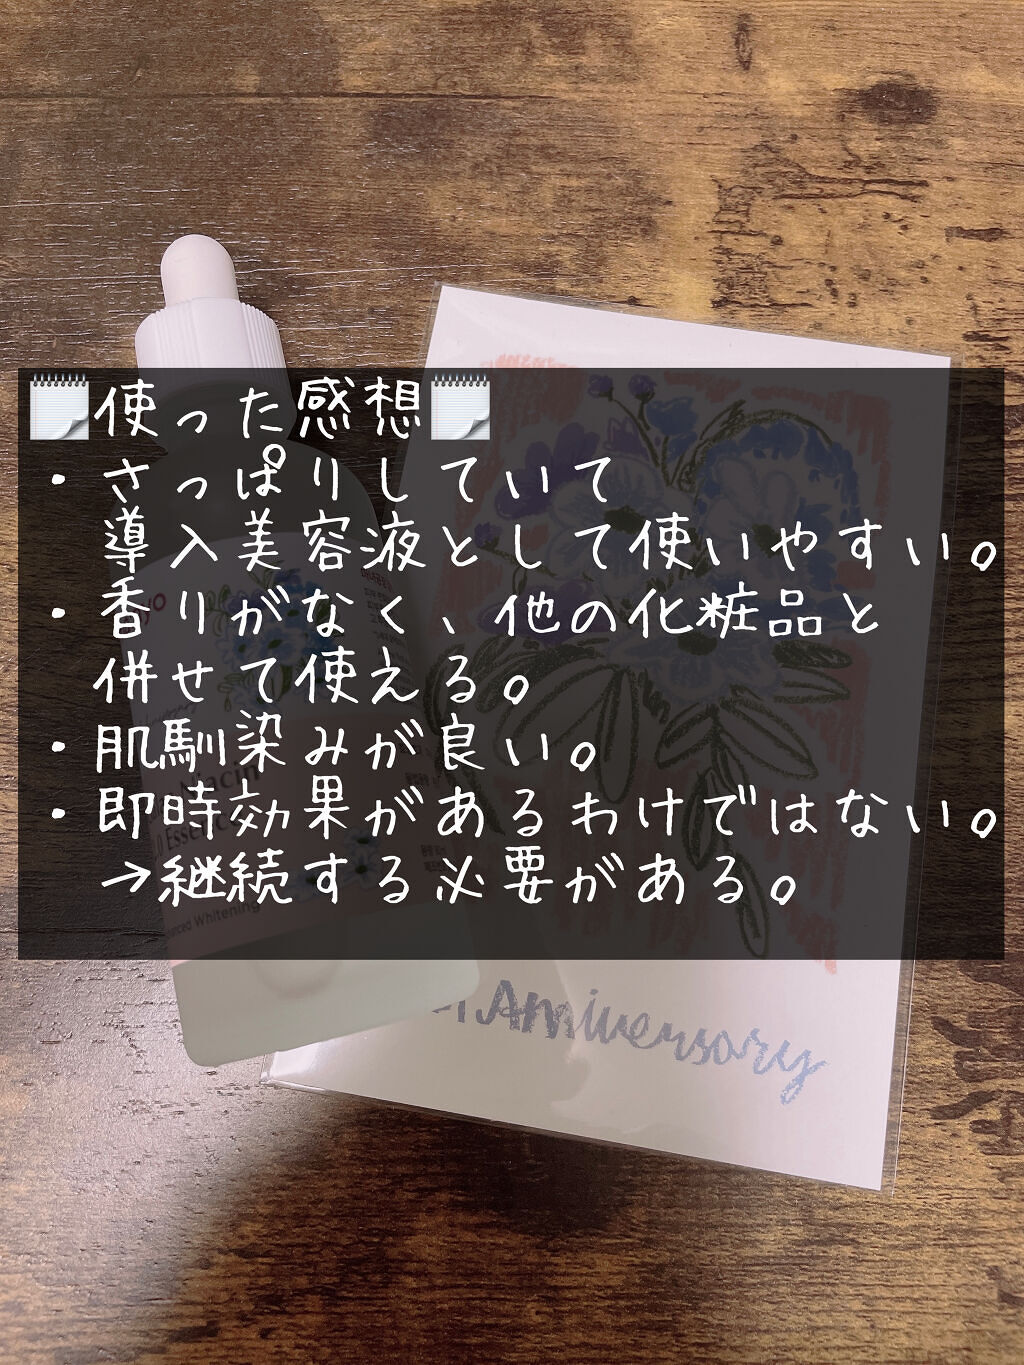 使った感想
・さっぱりしていて
導入美容液として使いやすい。
・香りがなく、他の化粧品と
併せて使える。
・肌馴染みが良い。
・即時効果があるわけではない。
→継続する必要がある。
Niacin
Essence
Whitening
Anniversary